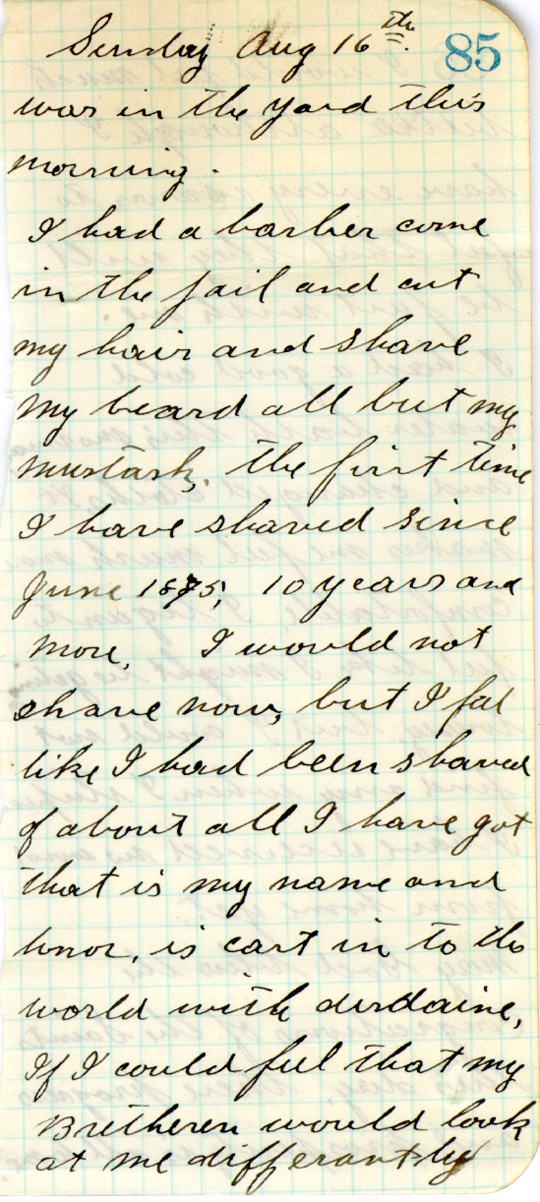 Sunday Aug 16th. 85
was in the yard this
morning.
I had a barber come
in the jail and cut
my hair and shave
my beard all but my
mustash, the first time
I have shaved since
June 1875, 10 years and
more, I would not
shave now, but I fel
like I had been shaved
of about all I have got
that is my name and
honor, is cast in to the
world with disdaine,
If I could feel that my
Bretheren would look
at me differantly